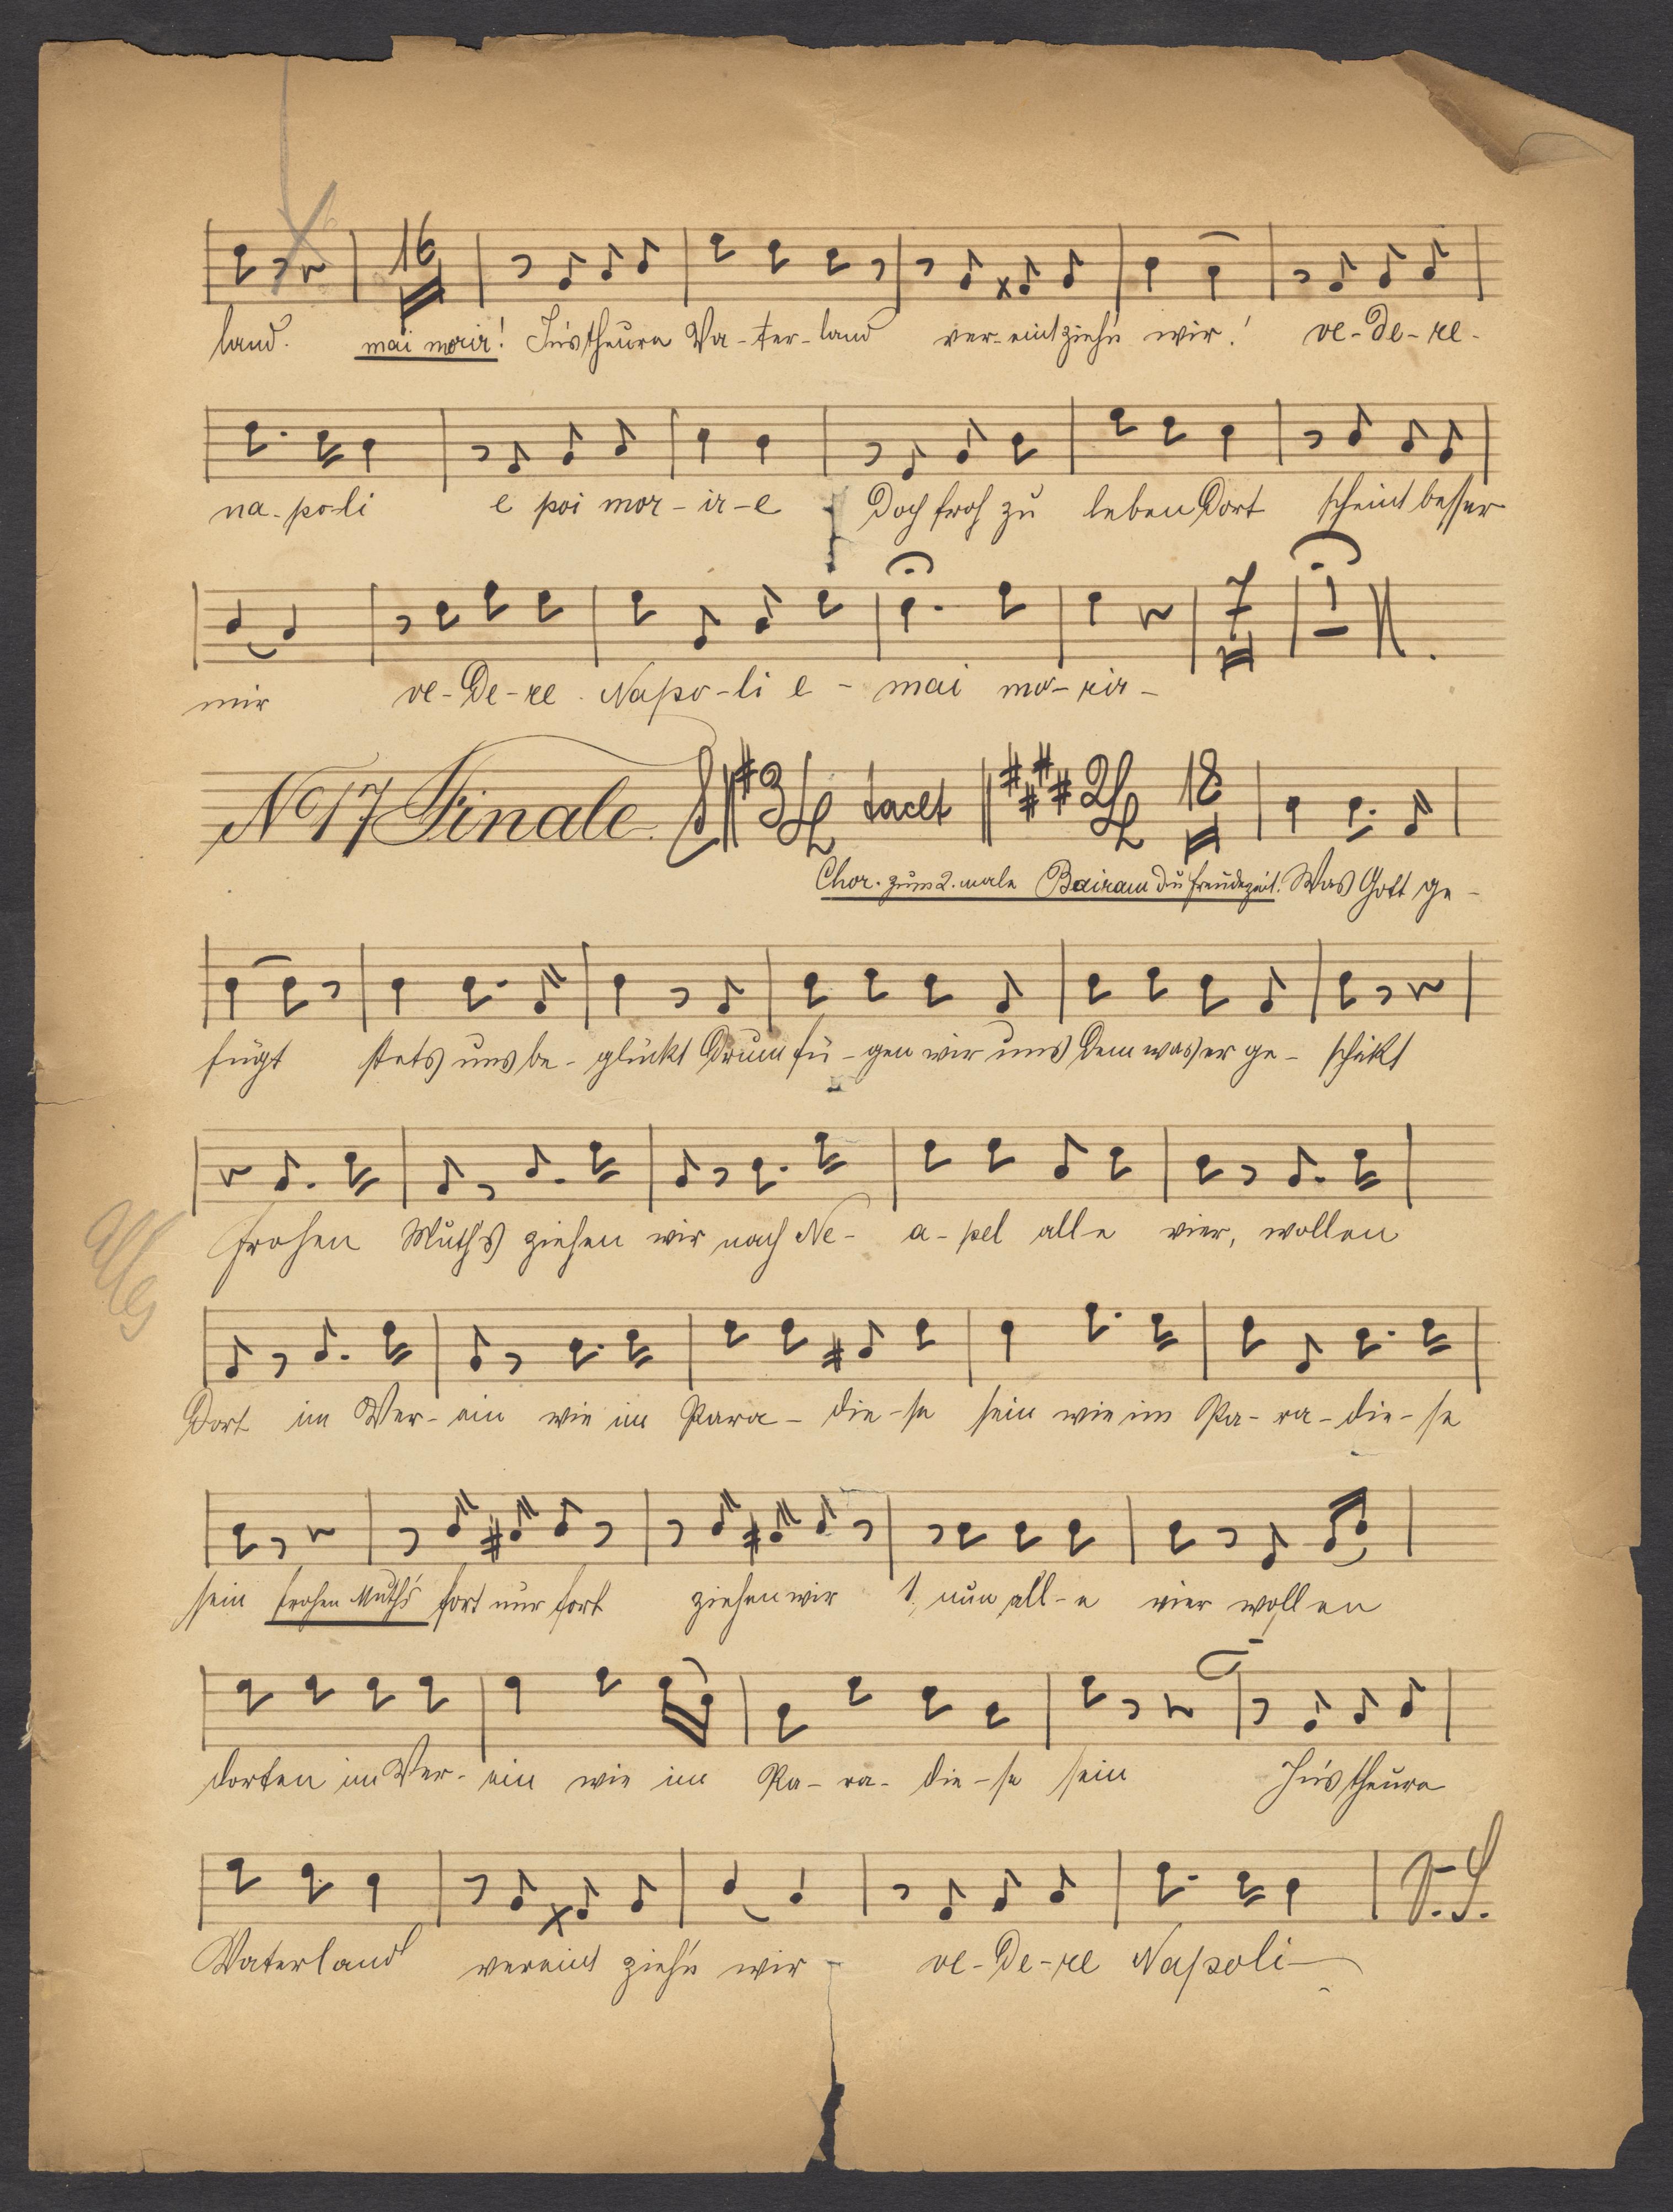 16
land. mai morir! In's theure Va-ter-land ver-eint zieh'n wir! ve-de-re-
na-po-li e poi mor-ir-e Doch froh zu leben dort scheint besser
7 1
mir ve-de-re Napo-li e - mai mo-rir -
No 17 Finale. 3/4 tacet 2/4 18
Chor. zum 2. male Bairam du freudezeit. Was Gott ge-
fügt stets uns be-glückt drum fü-gen wir uns dem was er ge-schickt
frohen Muths ziehen wir nach Ne-a-pel alle vier, wollen
Alles
dort im Ver-ein wie im Para-die-se sein wie im Pa-ra-die-se
sein frohen Muth's fort nur fort ziehen wir nun all-e vier wollen
dorten im Ver-ein wie im Pa-ra-die-se sein In's theure
Vaterland vereint zieh'n wir - ve-de-re Napoli
V.S.